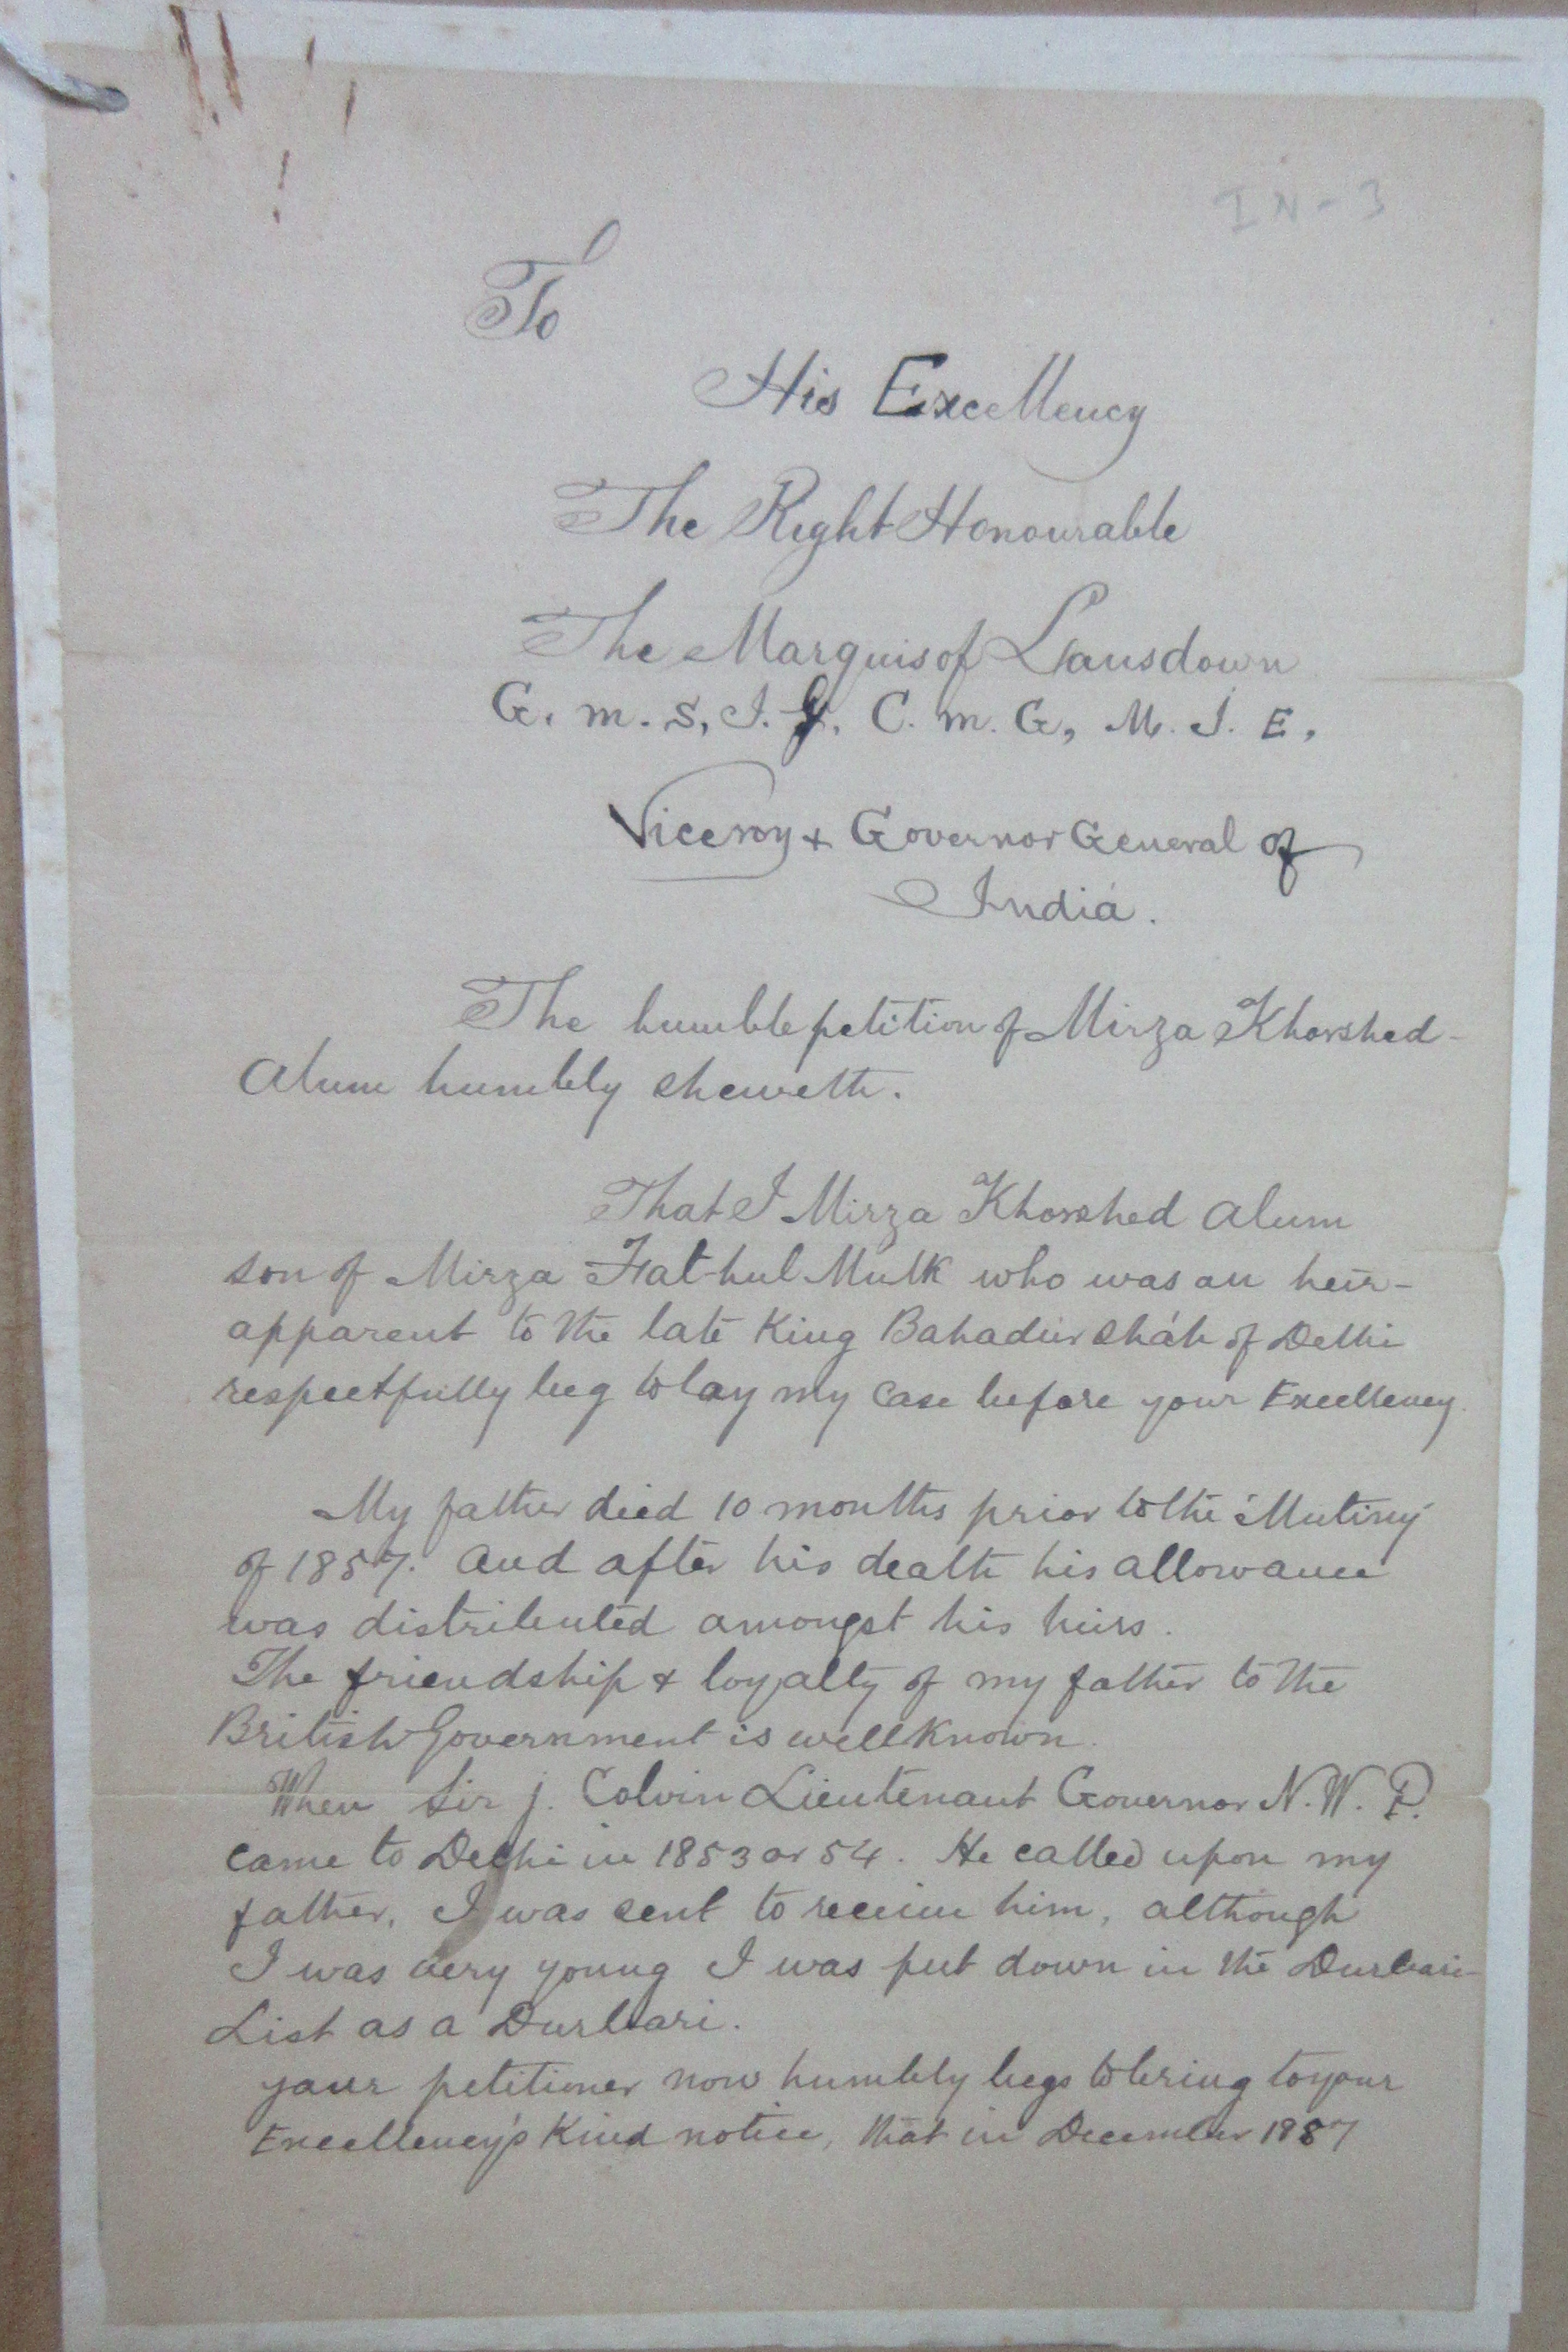 IN-3
To
His Excellency
The Right Honourable
The Marquis of Lansdown
G. m. S, I. G. C. m. G, M. I. E,
Viceroy & Governor General of
India.
The humble petition of Mirza Khorshed-
Alum humbly sheweth.
That I Mirza Khorshed Alum
son of Mirza Fat-hul Mulk who was an heir-
apparent to the late King Bahadur Sháh of Delhi
respectfully beg to lay my case before your Excellency.
My father died 10 months prior to the 'Mutiny'
of 1857. And after his death his allowance
was distributed amongst his heirs.
The friendship & loyalty of my father to the
British Government is well known.
When Sir J. Colvin Lieutenant Governor N. W. P.
came to Delhi in 1853 or 54. He called upon my
father, I was sent to receive him, although
I was very young I was put down in the Durbari-
List as a Durbari.
your petitioner now humbly begs to bring to your
Excellency's Kind notice, that in December 1887